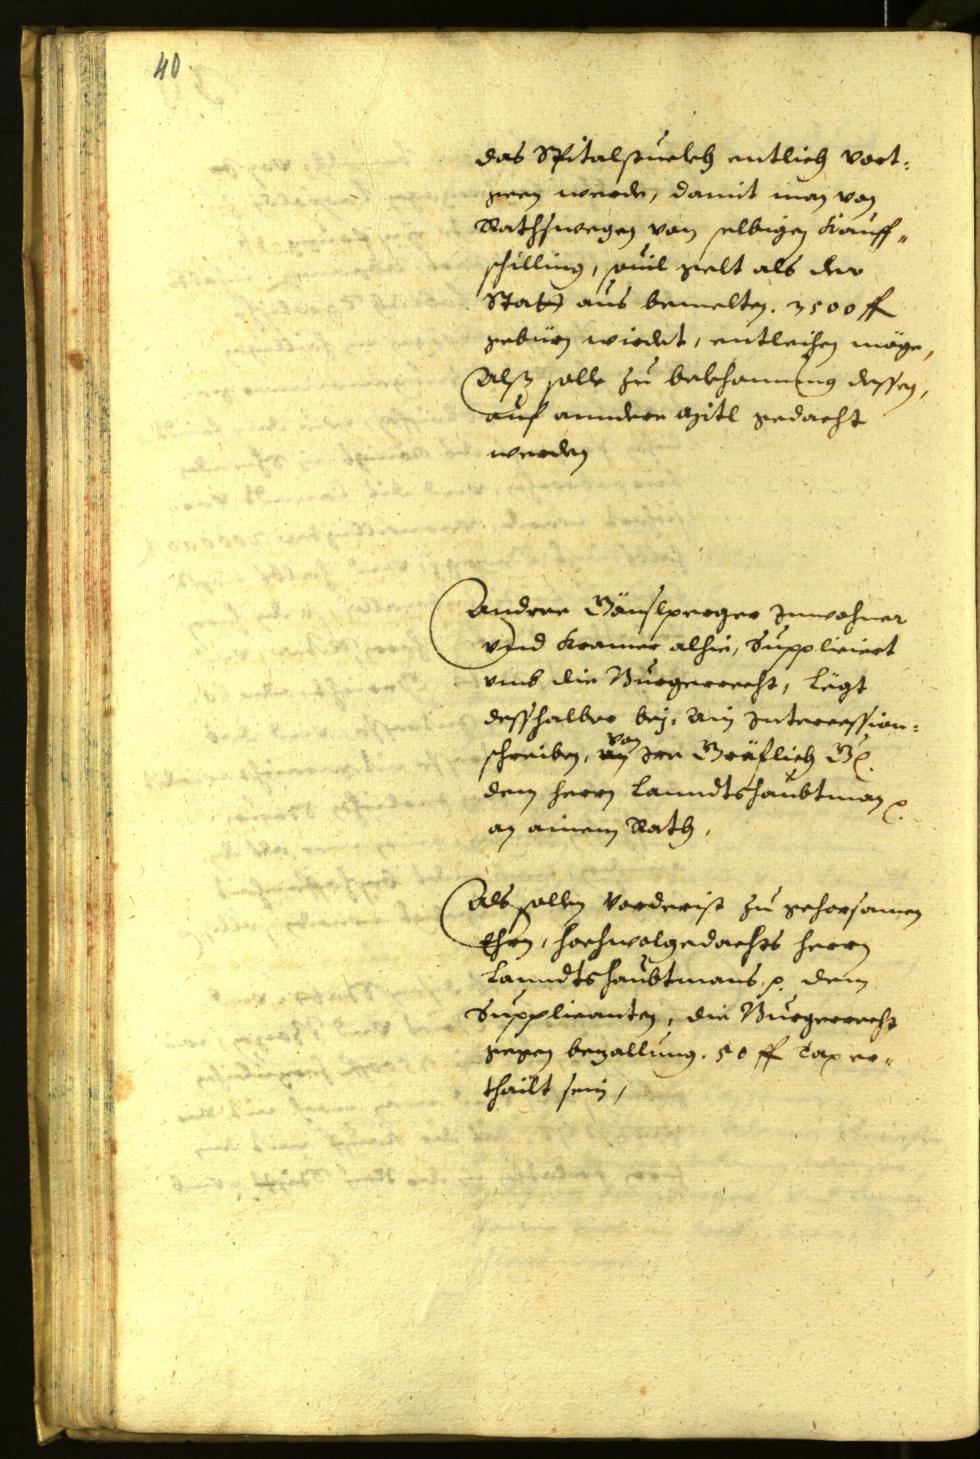 40
das Spitalguelch entlich vort:
geen werde, damit man von
Rathswegen von selbigen Kauff„
schilling, souil gelt als der
Statt aus bemelten. 3500 ff
gebürn wirdet, entleihen möge,
Alß solle zu bekhomung dessen,
auf anndere Mitl gedacht
werden
Andree Gänslperger Inwohner
vnd Kramer alhie, Suppliciert
vmb die Burgerrecht, Legt
desshalber bej, ain Intercession:
schreiben, von Irr Gräflich G.
dem herrn Lanndtshaubtman p.
an ainem Rath,
Als sollen Vorderist zu gehorsamen
Ehrn, hochwolgedachts herrn
Lanndtshaubtmans p. dem
Supplicanten, die Burgerrecht
gegen bezallung. 50 ff Tax er„
thailt sein,